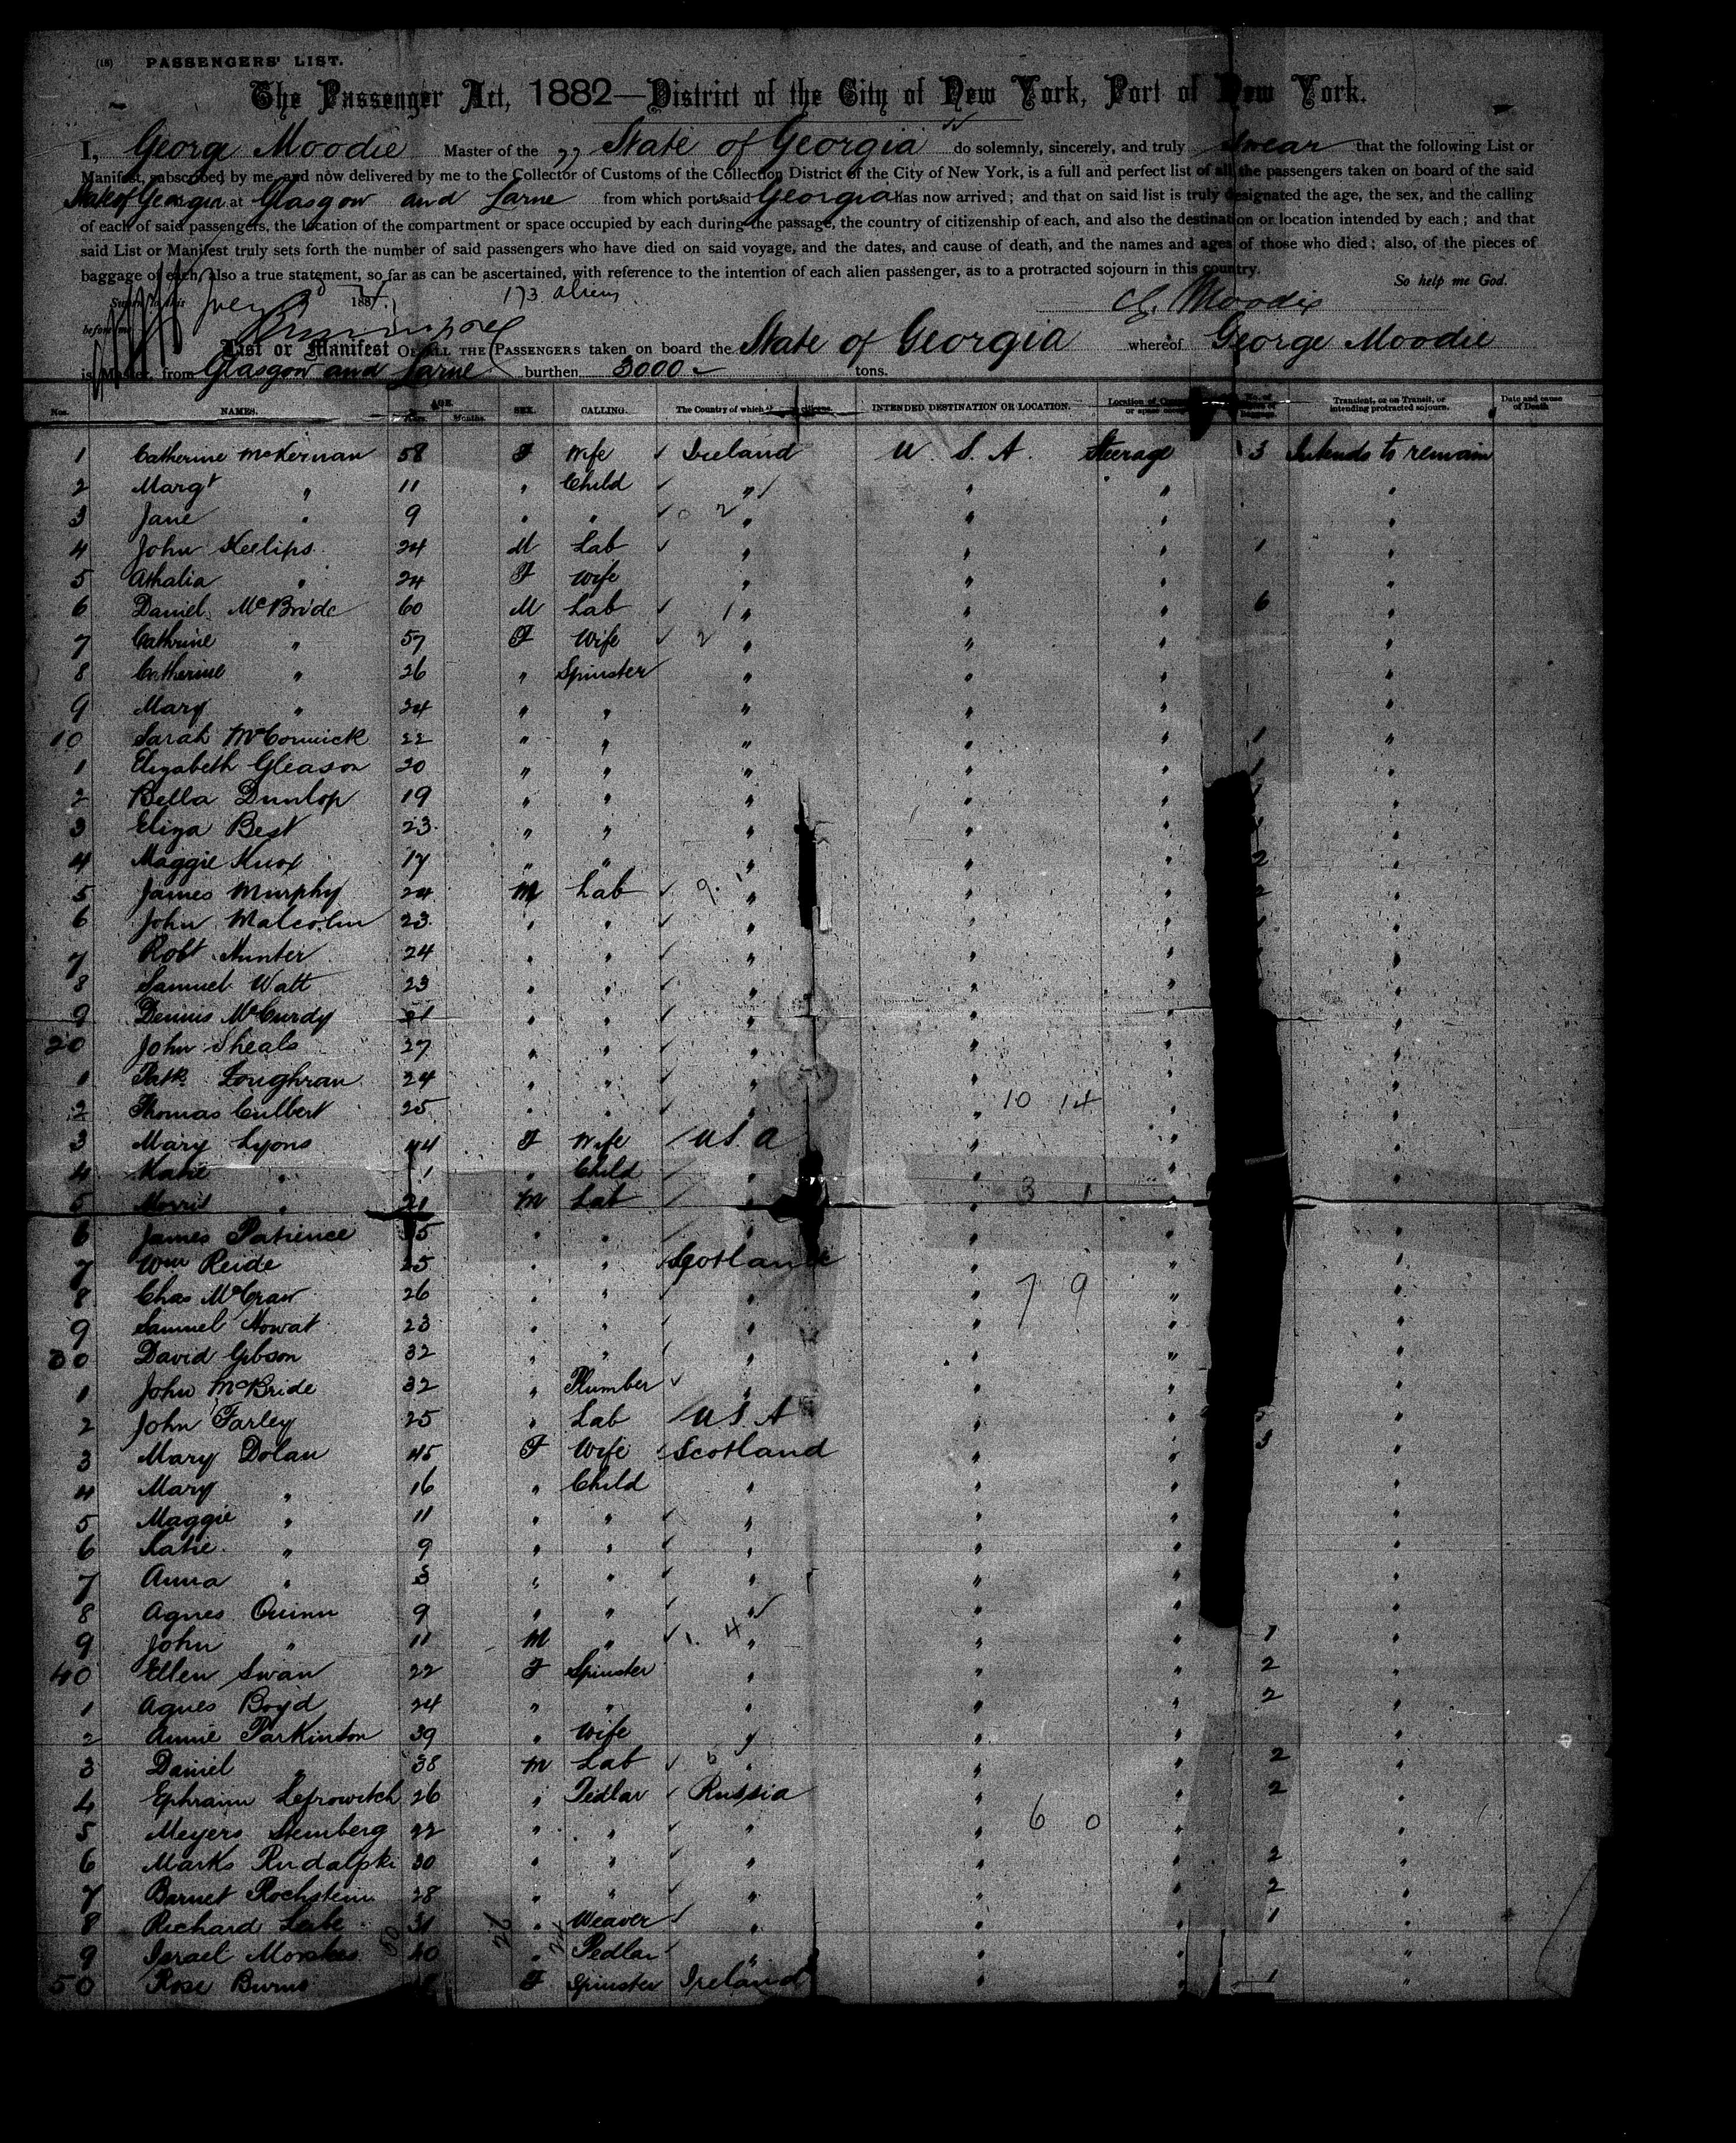 (18) PASSENGERS' LIST.
The Passenger Act, 1882—District of the City of New York, Port of New York.
I, George Moodie Master of the " State of Georgia do solemnly, sincerely, and truly Swear that the following List or
Manifest, subscribed by me, and now delivered by me to the Collector of Customs of the Collection District of the City of New York, is a full and perfect list of all the passengers taken on board of the said
State of Georgia at Glasgow and Larne from which port said Georgia has now arrived; and that on said list is truly designated the age, the sex, and the calling
of each of said passengers, the location of the compartment or space occupied by each during the passage, the country of citizenship of each, and also the destination or location intended by each; and that
said List or Manifest truly sets forth the number of said passengers who have died on said voyage, and the dates, and cause of death, and the names and ages of those who died; also, of the pieces of
baggage of each, also a true statement, so far as can be ascertained, with reference to the intention of each alien passenger, as to a protracted sojourn in this country. So help me God.
188 173 aliens G. Moodie
before me
List or Manifest OF ALL THE PASSENGERS taken on board the State of Georgia whereof George Moodie
is Master, from Glasgow and Larne burthen 3000 tons.
Nos. NAMES. AGE. Years. Months. SEX. CALLING. The Country of which citizens. INTENDED DESTINATION OR LOCATION. Location of or space No. of Transient, or on Transit, or intending protracted sojourn. Date and cause of Death
1 Catherine McKernan 58 F Wife Ireland U. S. A. Steerage 3 Intends to remain
2 Margt " 11 " Child " " " "
3 Jane " 9 " " 0 2 " " " "
4 John Heelips 24 M Lab " " " 1 "
5 Athalia " 24 F Wife " " " "
6 Daniel McBride 60 M Lab 1 " " " 6 "
7 Cathrine " 57 F Wife 2 " " " "
8 Catherine " 26 " Spinster " " " "
9 Mary " 24 " " " " " "
10 Sarah McCormick 22 " " " " " 1 "
1 Elizabeth Gleason 20 " " " " " 1 "
2 Bella Dunlop 19 " " " " " "
3 Eliza Best 23 " " " " " "
4 Maggie Knox 17 " " " " " 2 "
5 James Murphy 24 M Lab 9 " " " 2 "
6 John Malcolm 23 " " " " " "
7 Robt Hunter 24 " " " " " "
8 Samuel Watt 23 " " " " " "
9 Dennis McCurdy 21 " " " " " "
20 John Sheals 27 " " " " " "
1 Patk Loughran 24 " " " " " "
2 Thomas Culbert 25 " " " " 10 14 " "
3 Mary Lyons 44 F Wife U.S.A " " "
4 Katie " 1 " Child " " " "
5 Morris " 21 M Lab " " 3 1 " "
6 James Patience 35 " " " " " "
7 Wm Reide 25 " " Scotland " " "
8 Chas McCraw 26 " " " " 7 9 " "
9 Samuel Howat 23 " " " " " "
30 David Gibson 32 " " " " " "
1 John McBride 32 " Plumber " " " "
2 John Farley 25 " Lab U.S.A " " "
3 Mary Dolan 45 F Wife Scotland " " 3 "
4 Mary " 16 " Child " " " "
5 Maggie " 11 " " " " " "
6 Katie " 9 " " " " " "
7 Anna " 3 " " " " " "
8 Agnes Quinn 9 " " " " " "
9 John " 11 M " 1 4 " " " 1 "
40 Ellen Swan 22 F Spinster " " " 2 "
1 Agnes Boyd 24 " " " " " 2 "
2 Annie Parkinton 39 " Wife " " " "
3 Daniel " 38 M Lab " " " 2 "
4 Ephraim Lefrowitch 26 " Pedlar Russia " " 2 "
5 Meyers Stemberg 22 " " " " 6 0 " "
6 Marks Rudalpki 30 " " " " " 2 "
7 Barnet Rochstein 28 " " " " " 2 "
8 Richard Labe 31 " Weaver " " " 1 "
9 Israel 40 " Pedlar " " " "
50 Rose Burns F Spinster Ireland " " 1 "